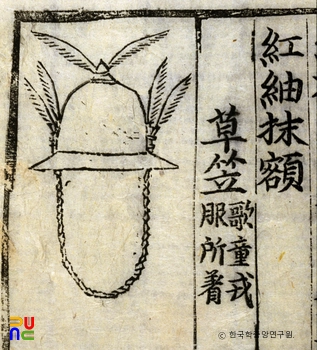 紅紬抹額
草笠 歌童戎
服所着
PUNC
© 한국학중앙연구원